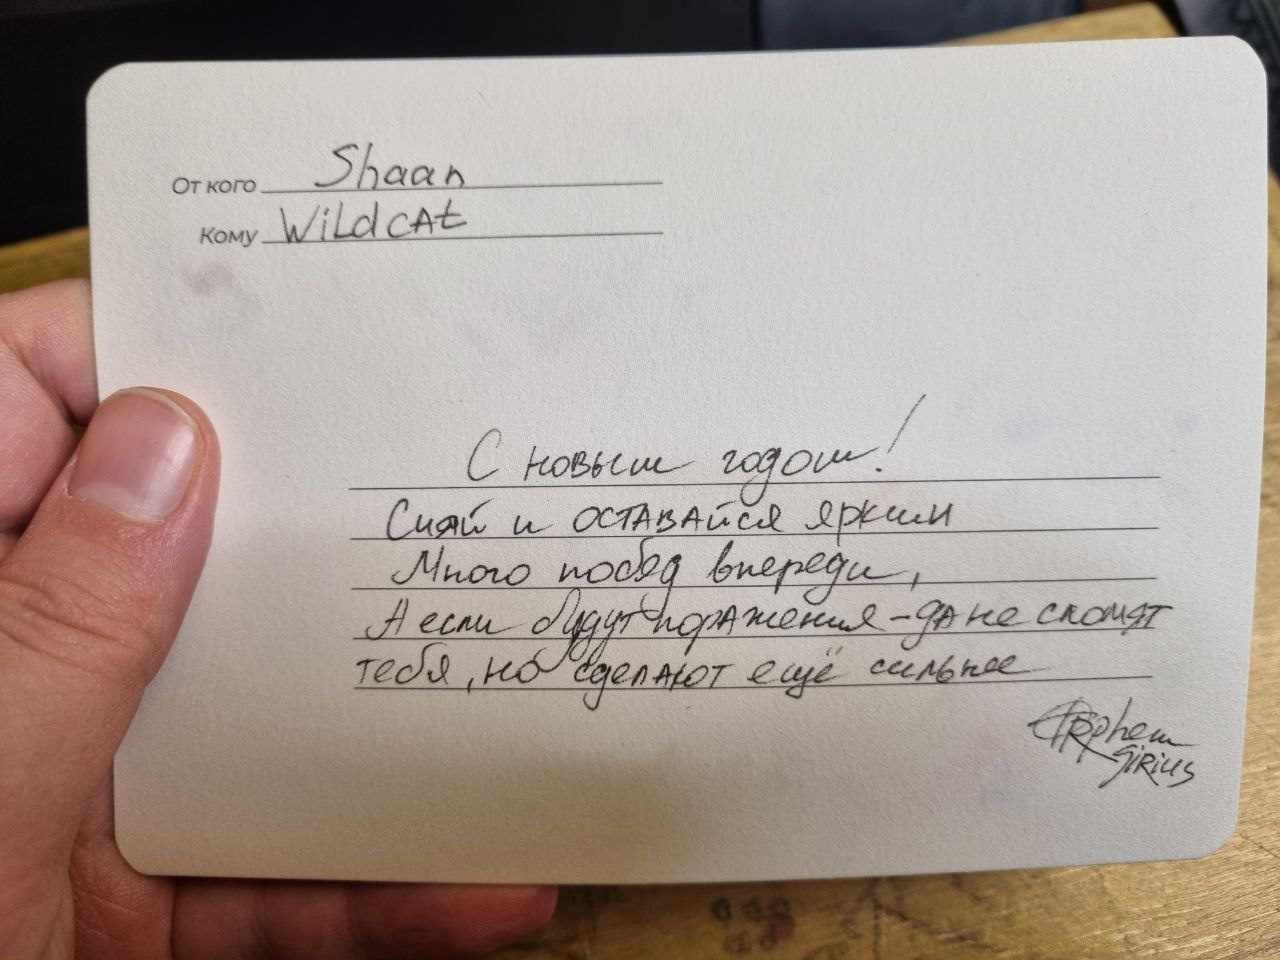 От кого Shaan
Кому Wildcat
С новым годом!
Сияй и оставайся ярким
Много побед впереди,
А если будут поражения - да не сломят
тебя, но сделают ещё сильнее
Sirius